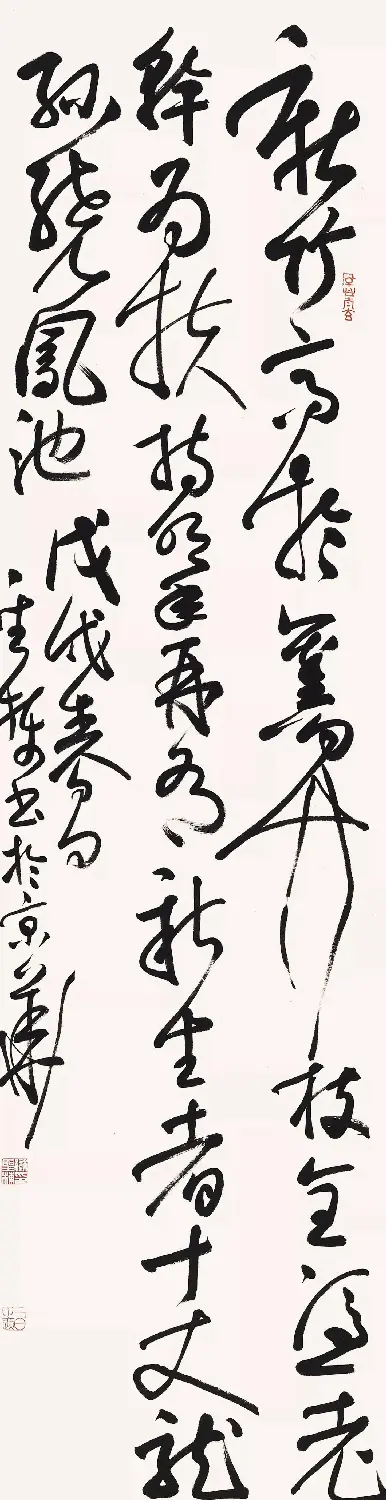 新竹高於舊竹枝全憑老
幹为扶持明年再有新生者十丈龍
孫繞鳳池
戊戌春
書於京華